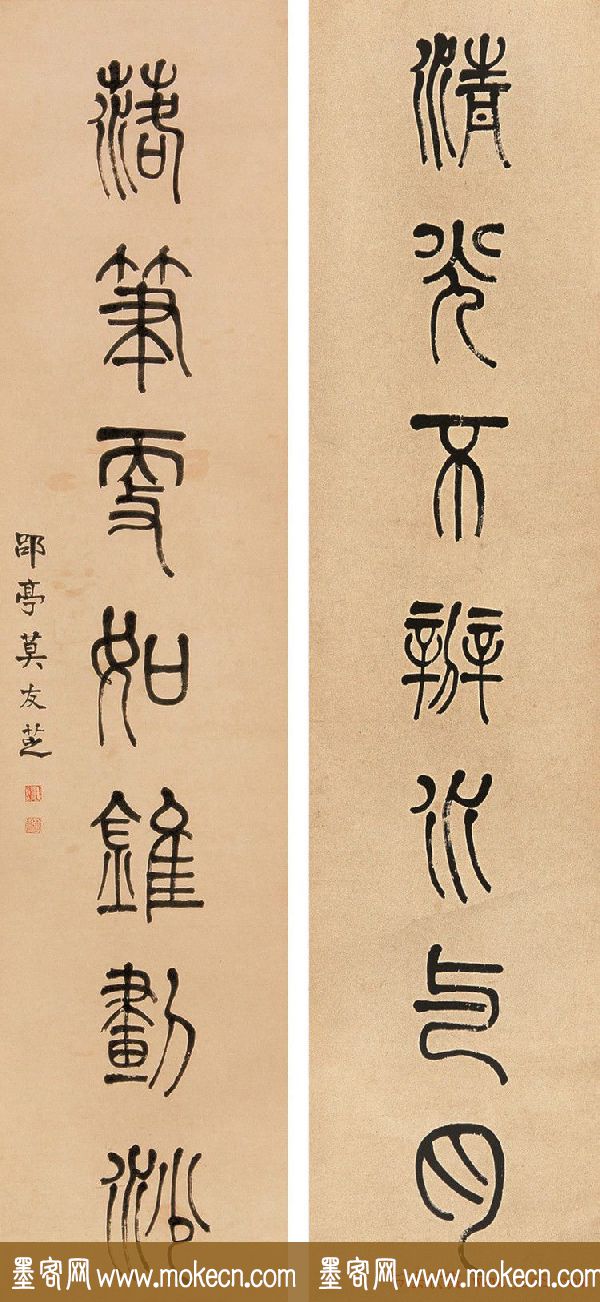 清光不辨水与月
落筆更如錐劃沙
郘亭莫友芝
墨客网 www.mokecn.com
墨客网 www.mokecn.com